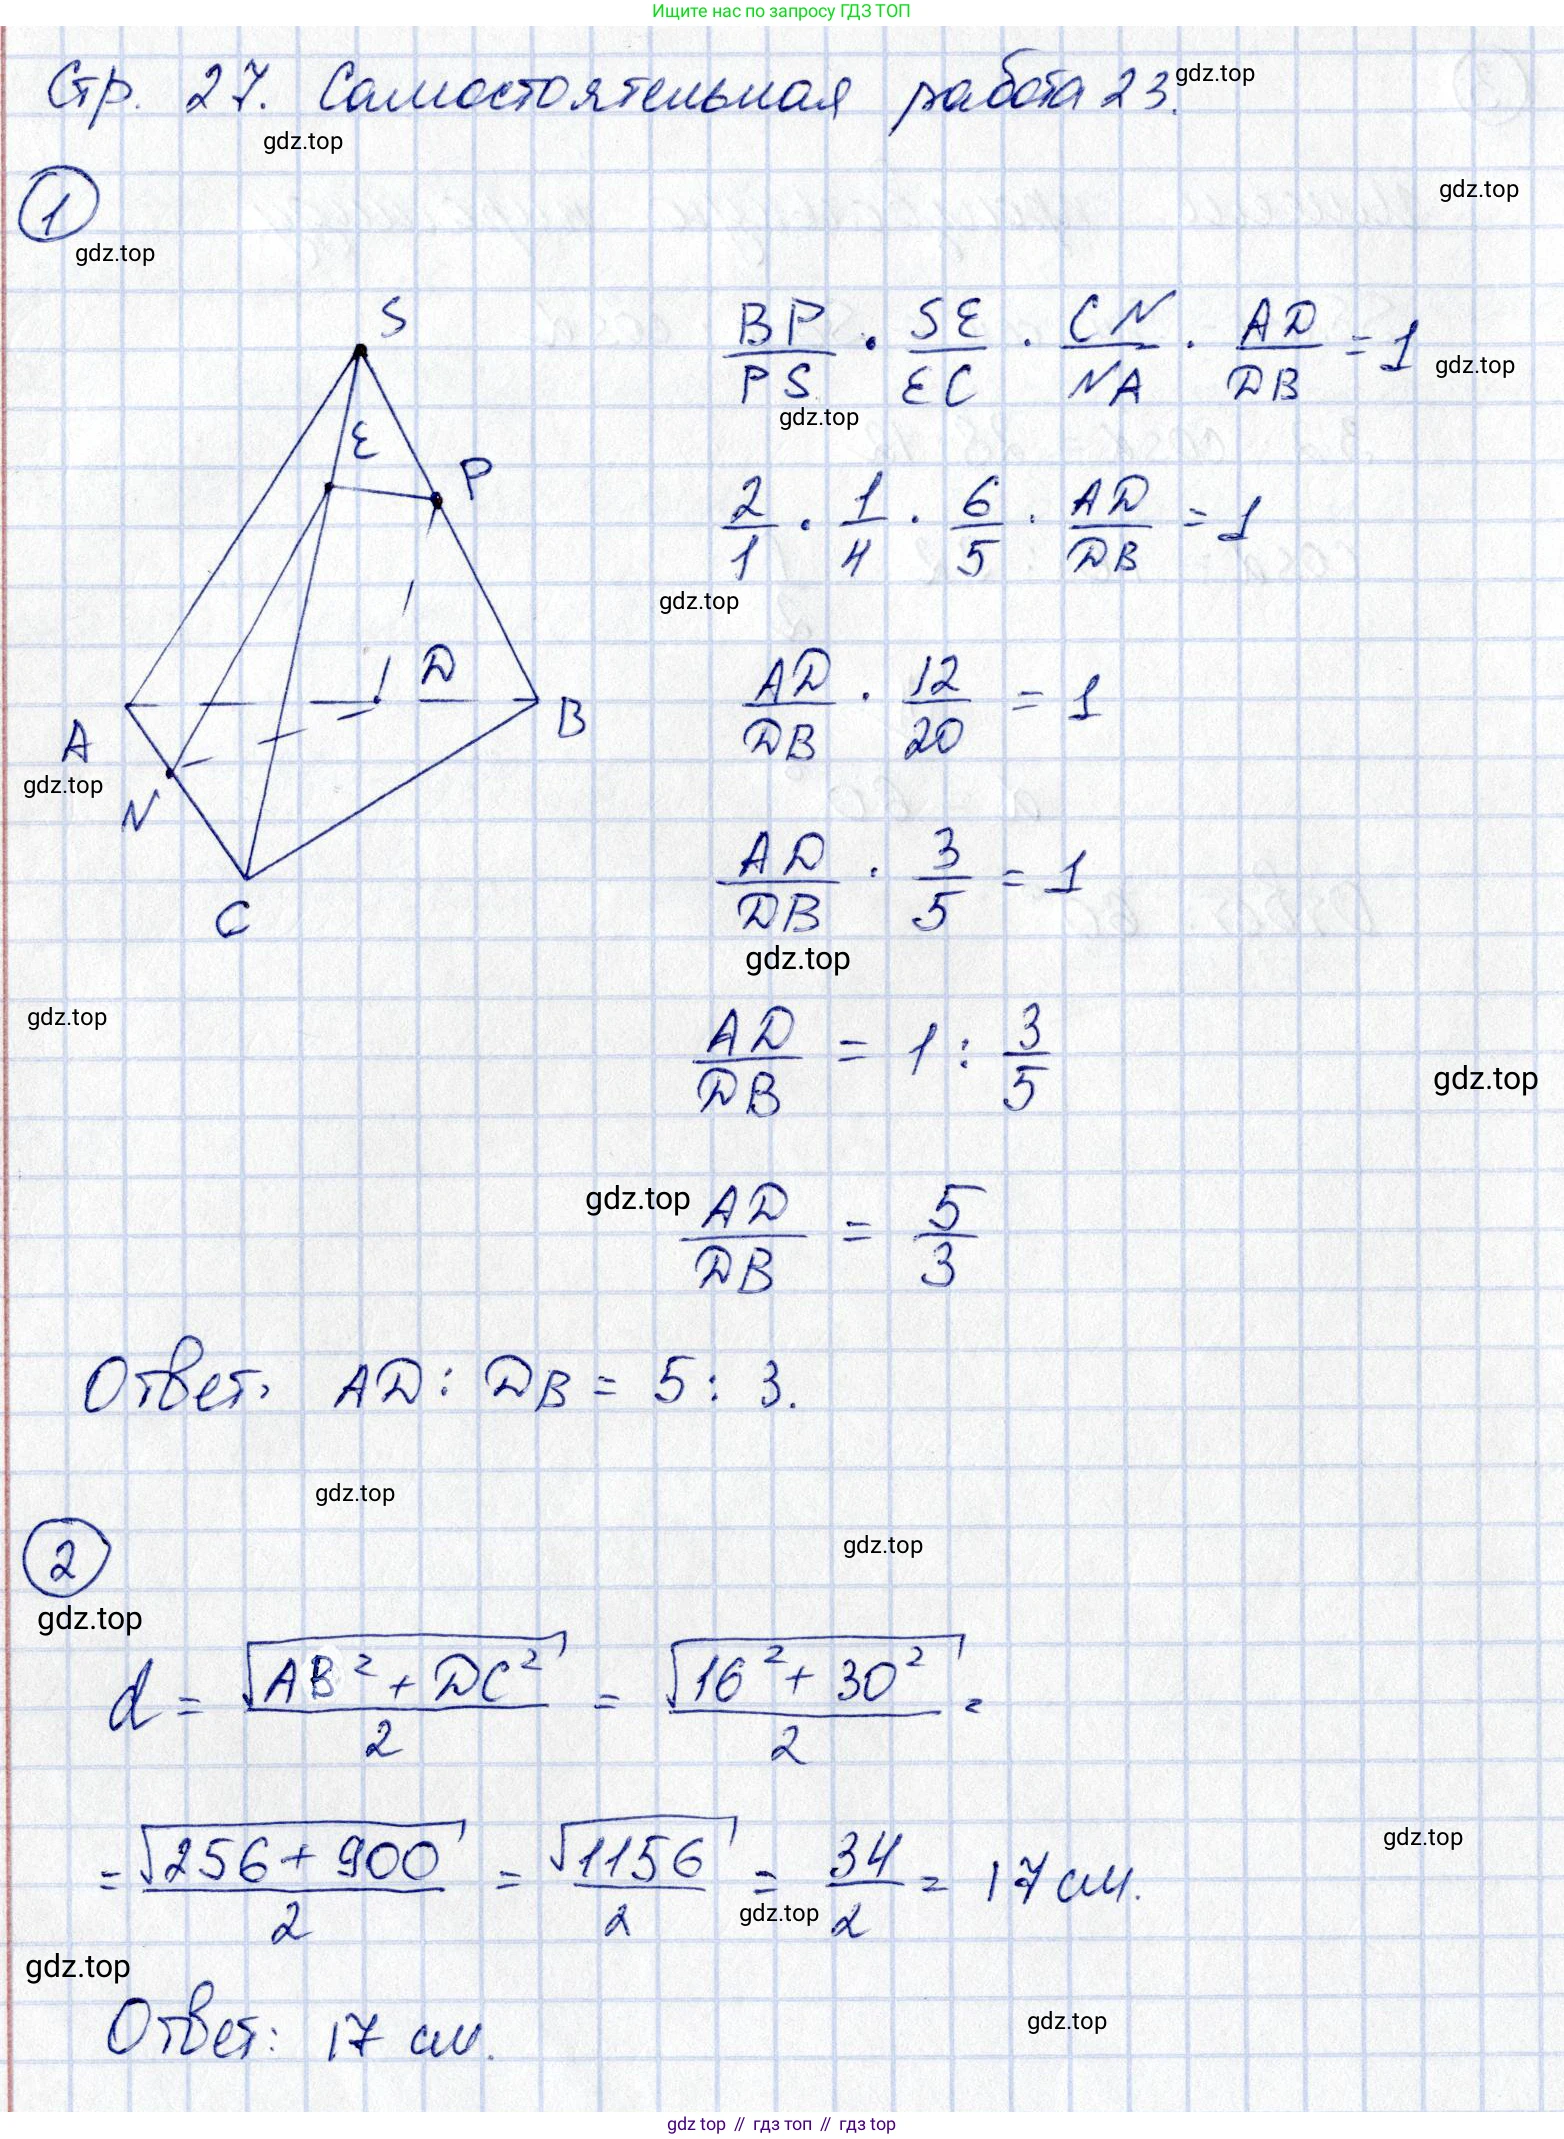 Ищите нас по запросу ГДЗ ТОП
Стр. 27. Самостоятельная работа 23.
gdz.top
gdz.top
1
gdz.top
gdz.top
S
E
P
A
D
B
N
C
BP/PS · SE/EC · CN/NA · AD/DB = 1
gdz.top
gdz.top
2/1 · 1/4 · 6/5 · AD/DB = 1
gdz.top
AD/DB · 12/20 = 1
gdz.top
AD/DB · 3/5 = 1
gdz.top
gdz.top
AD/DB = 1 : 3/5
gdz.top
gdz.top
AD/DB = 5/3
Ответ. AD : DB = 5 : 3.
gdz.top
gdz.top
2
gdz.top
d = √(AB² + DC²)/2 = √(16² + 30²)/2 =
= √(256 + 900)/2 = √1156/2 = 34/2 = 17 см.
gdz.top
gdz.top
gdz.top
Ответ: 17 см.
gdz.top
gdz top // гдз топ // гдз top